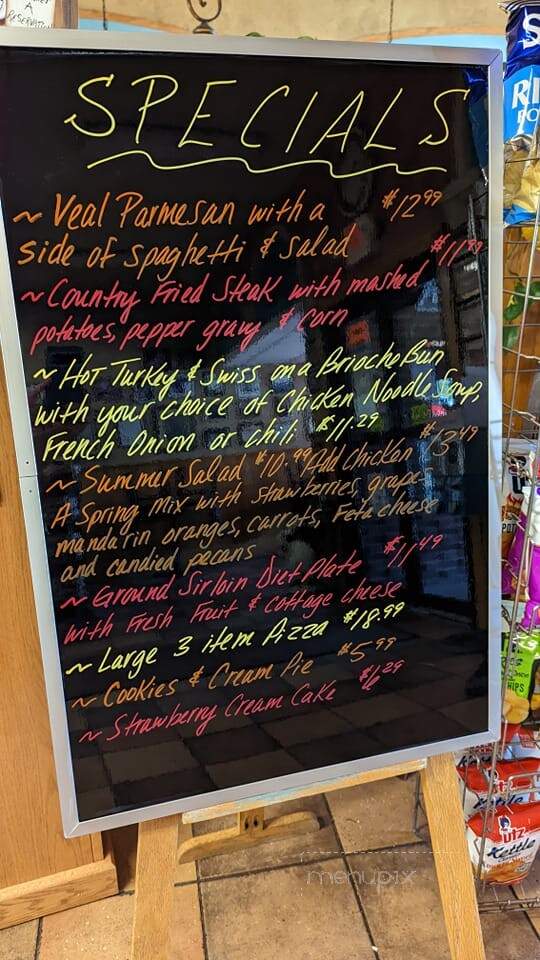 A
RESERVATION
SPECIALS
~ Veal Parmesan with a $12.99
side of spaghetti & salad
~ Country Fried Steak with mashed $11.99
potatoes, pepper gravy & corn
~ HOT Turkey & Swiss on a Brioche Bun
with your choice of Chicken Noodle Soup,
French Onion or chili $11.29
~ Summer Salad $10.99 Add Chicken $3.49
A Spring Mix with strawberries, grapes
mandarin oranges, carrots, Feta cheese
and candied pecans
~ Ground Sirloin Diet Plate $11.49
with Fresh Fruit & cottage cheese
~ Large 3 item Pizza $18.99
~ Cookies & Cream Pie $5.99
~ Strawberry Cream Cake $6.29
menupix
UTZ
Kettle